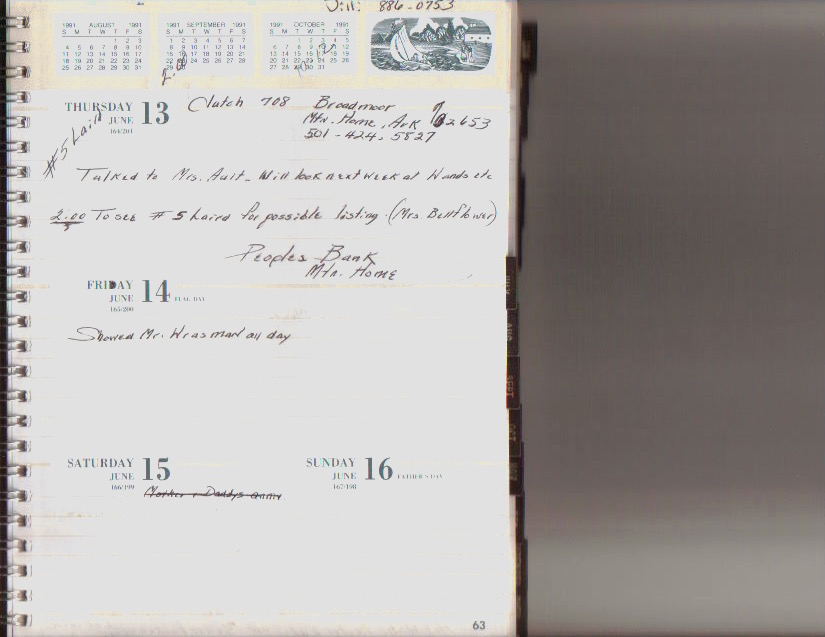 886-0753
1991 AUGUST 1991
S M T W T F S
1 2 3
4 5 6 7 8 9 10
11 12 13 14 15 16 17
18 19 20 21 22 23 24
25 26 27 28 29 30 31
1991 SEPTEMBER 1991
S M T W T F S
1 2 3 4 5 6 7
8 9 10 11 12 13 14
15 16 17 18 19 20 21
22 23 24 25 26 27 28
29 30
1991 OCTOBER 1991
S M T W T F S
1 2 3 4 5
6 7 8 9 10 11 12
13 14 15 16 17 18 19
20 21 22 23 24 25 26
27 28 29 30 31
THURSDAY 13
JUNE
164/201
#5 Laird
Clutch 708 Broadmoor
Mtn. Home, Ark 72653
501-424-5827
Talked to Mrs. Ault. Will look next week at Wands etc
2:00 To see #5 Laird for possible listing. (Mrs Bellflower)
Peoples Bank
Mtn. Home
FRIDAY 14
JUNE FLAG DAY
165/200
Showed Mr. Wrasman all day
SATURDAY 15
JUNE
166/199
Mother & Daddys anniv
SUNDAY 16
JUNE FATHER'S DAY
167/198
AUG
SEPT
OCT
63